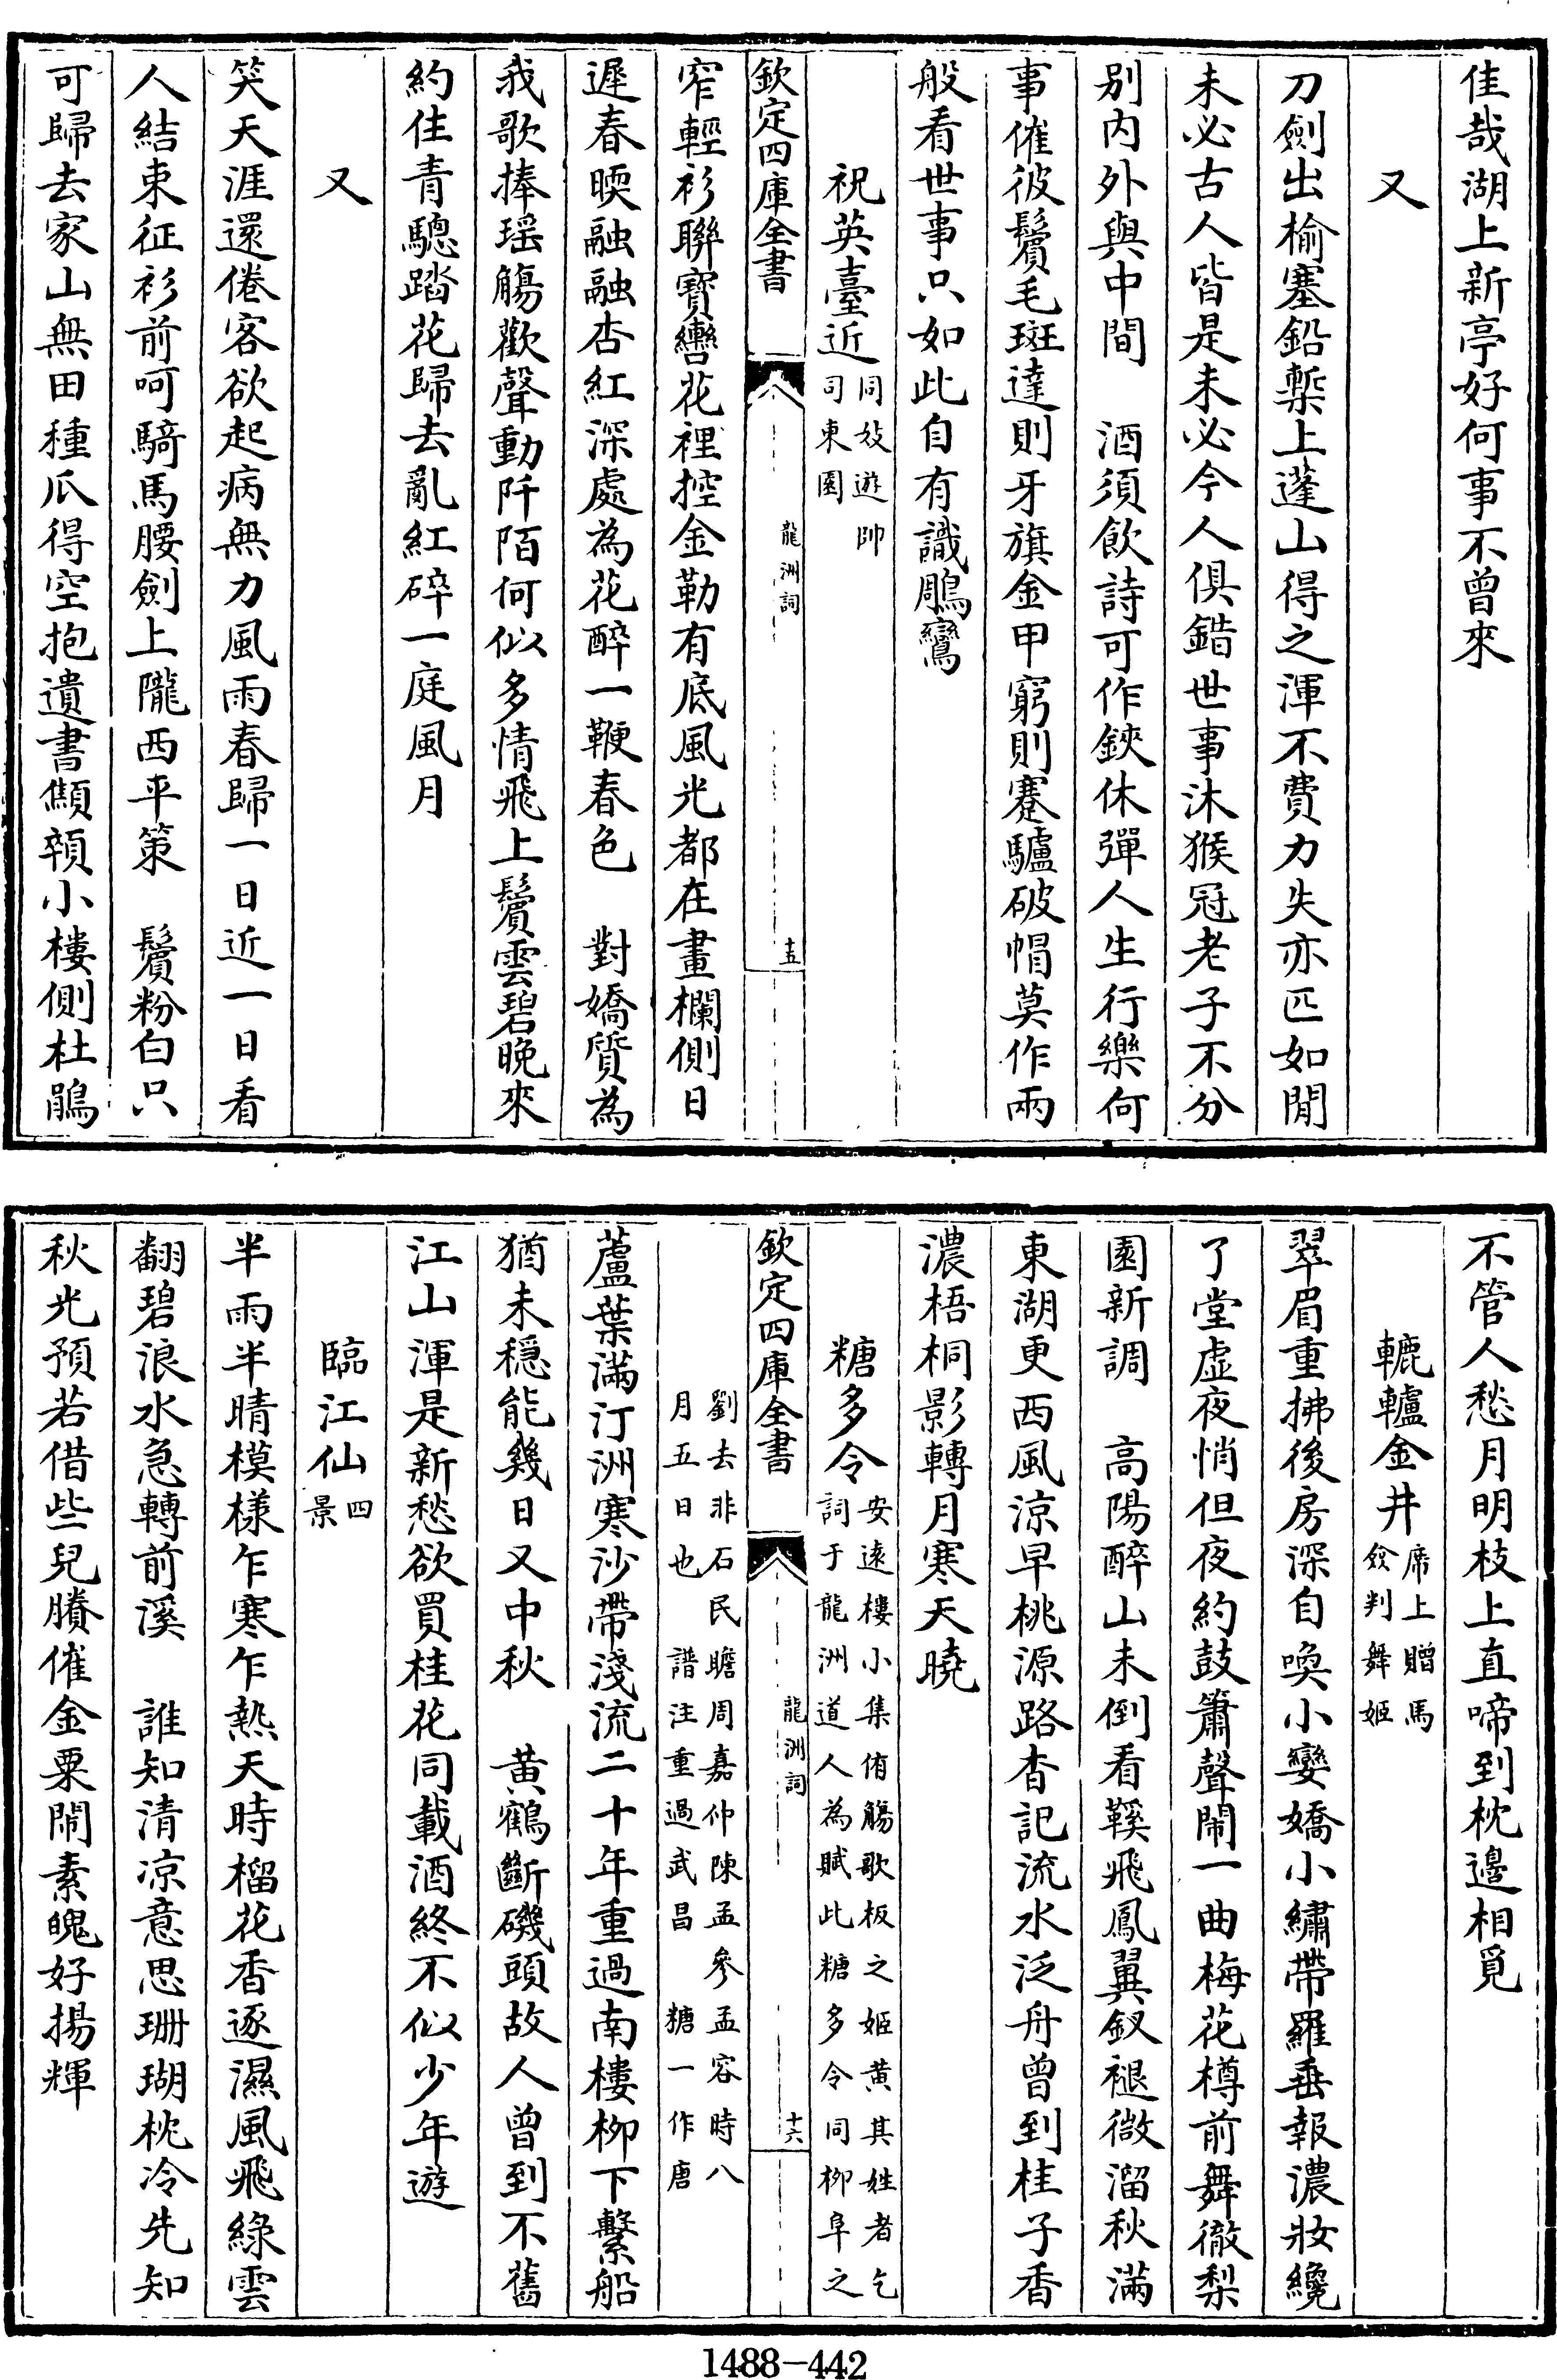 佳哉湖上新亭好何事不曾來
又
刀劍出榆塞鉛槧上蓬山得之渾不費力失亦匹如閒
未必古人皆是未必今人俱錯世事沐猴冠老子不分
别内外與中間　酒須飲詩可作鋏休彈人生行樂何
事催彼鬢毛斑達則牙旗金甲窮則蹇驢破帽莫作兩
般看世事只如此自有識鵰鸞
祝英臺近同妓遊帥
司東園
欽定四庫全書
龍洲詞
十五
窄輕衫聯寶轡花裡控金勒有底風光都在畫欄側日
遲春暖融融杏紅深處為花醉一鞭春色　對嬌質為
我歌捧瑶觴歡聲動阡陌何似多情飛上鬢雲碧晚來
約住青驄踏花歸去亂紅碎一庭風月
又
笑天涯還倦客欲起病無力風雨春歸一日近一日看
人結束征衫前呵騎馬腰劍上隴西平策　鬢粉白只
可歸去家山無田種瓜得空抱遺書顦顇小樓側杜鵑
不管人愁月明枝上直啼到枕邊相覓
轆轤金井席上贈馬
僉判舞姬
翠眉重拂後房深自喚小孌嬌小繡帶羅垂報濃妝纔
了堂虛夜悄但夜約鼓簫聲鬧一曲梅花樽前舞徹梨
園新調　高陽醉山未倒看鞵飛鳳翼釵褪微溜秋滿
東湖更西風涼早桃源路杳記流水泛舟曾到桂子香
濃梧桐影轉月寒天曉
糖多令安遠樓小集侑觴歌板之姬黄其姓者乞
詞于龍洲道人為賦此糖多令同柳阜之
欽定四庫全書
龍洲詞
十六
劉去非石民瞻周嘉仲陳孟參孟容時八
月五日也　譜注重過武昌　糖一作唐
蘆葉滿汀洲寒沙帶淺流二十年重過南樓柳下繫船
猶未穩能幾日又中秋　黄鶴斷磯頭故人曾到不舊
江山渾是新愁欲買桂花同載酒終不似少年遊
臨江仙四
景
半雨半晴模樣乍寒乍熱天時榴花香逐濕風飛綠雲
翻碧浪水急轉前溪　誰知清凉意思珊瑚枕冷先知
秋光預若借些兒賸催金粟鬧素魄好揚輝
1488—442